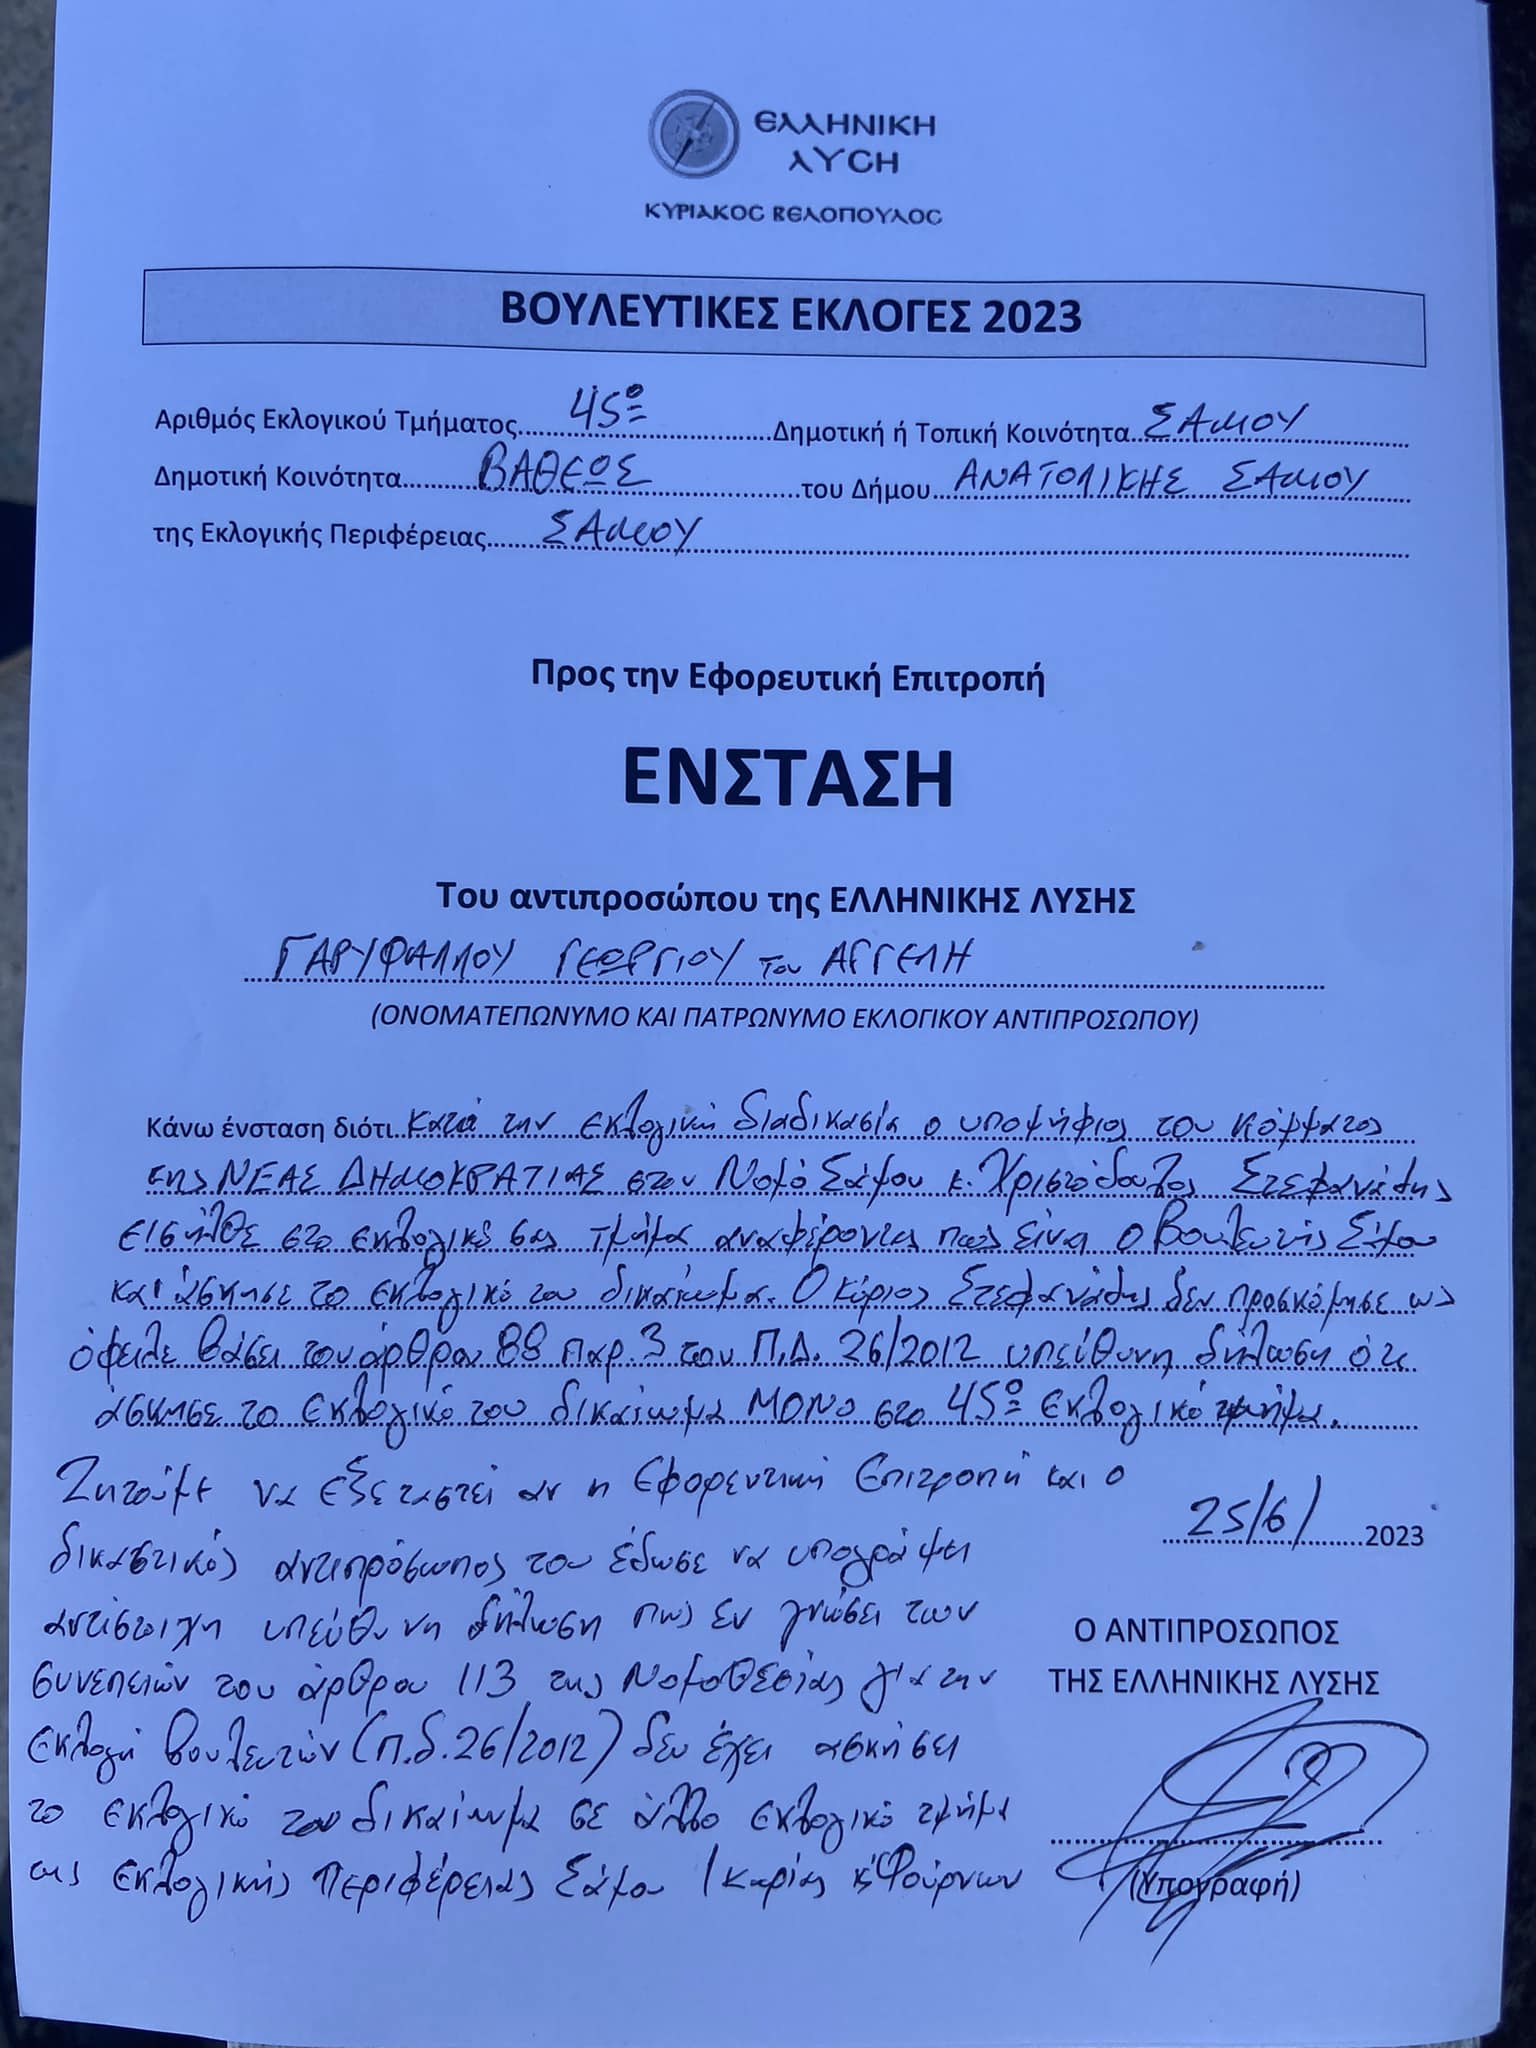 ΕΛΛΗΝΙΚΗ
ΛΥCΗ
ΚΥΡΙΑΚΟC ΒΕΛΟΠΟΥΛΟC
ΒΟΥΛΕΥΤΙΚΕΣ ΕΚΛΟΓΕΣ 2023
Αριθμός Εκλογικού Τμήματος 45ο Δημοτική ή Τοπική Κοινότητα ΣΑΜΟΥ
Δημοτική Κοινότητα ΒΑΘΕΩΣ του Δήμου ΑΝΑΤΟΛΙΚΗΣ ΣΑΜΟΥ
της Εκλογικής Περιφέρειας ΣΑΜΟΥ
Προς την Εφορευτική Επιτροπή
ΕΝΣΤΑΣΗ
Του αντιπροσώπου της ΕΛΛΗΝΙΚΗΣ ΛΥΣΗΣ
ΓΑΡΥΦΑΛΛΟΥ ΓΕΩΡΓΙΟΥ του ΑΓΓΕΛΗ
(ΟΝΟΜΑΤΕΠΩΝΥΜΟ ΚΑΙ ΠΑΤΡΩΝΥΜΟ ΕΚΛΟΓΙΚΟΥ ΑΝΤΙΠΡΟΣΩΠΟΥ)
Κάνω ένσταση διότι κατά την εκλογική διαδικασία ο υποψήφιος του κόμματος
της ΝΕΑΣ ΔΗΜΟΚΡΑΤΙΑΣ στον Νομό Σάμου κ. Χριστόδουλος Στεφανάδης
εισήλθε στο εκλογικό μας τμήμα αναφέροντας πως είναι ο Βουλευτής Σάμου
και άσκησε το εκλογικό του δικαίωμα. Ο κύριος Στεφανάδης δεν προσκόμησε ως
όφειλε βάσει του άρθρου 88 παρ. 3 του Π.Δ. 26/2012 υπεύθυνη δήλωση ότι
άσκησε το εκλογικό του δικαίωμα ΜΟΝΟ στο 45ο εκλογικό τμήμα.
Ζητούμε να εξεταστεί αν η Εφορευτική Επιτροπή και ο
δικαστικός αντιπρόσωπος του έδωσε να υπογράψει
αντίστοιχη υπεύθυνη δήλωση πως εν γνώσει των
συνεπειών του άρθρου 113 της Νομοθεσίας για την
εκλογή βουλευτών (π.δ. 26/2012) δεν έχει ασκήσει
το εκλογικό του δικαίωμα σε άλλο εκλογικό τμήμα
της εκλογικής περιφέρειας Σάμου Ικαρίας κ Φούρνων
25/6/ 2023
Ο ΑΝΤΙΠΡΟΣΩΠΟΣ
ΤΗΣ ΕΛΛΗΝΙΚΗΣ ΛΥΣΗΣ
(Υπογραφή)